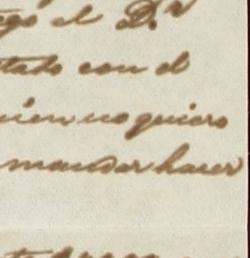 el D.r
tado con el
uien no quiero
mandar hacer